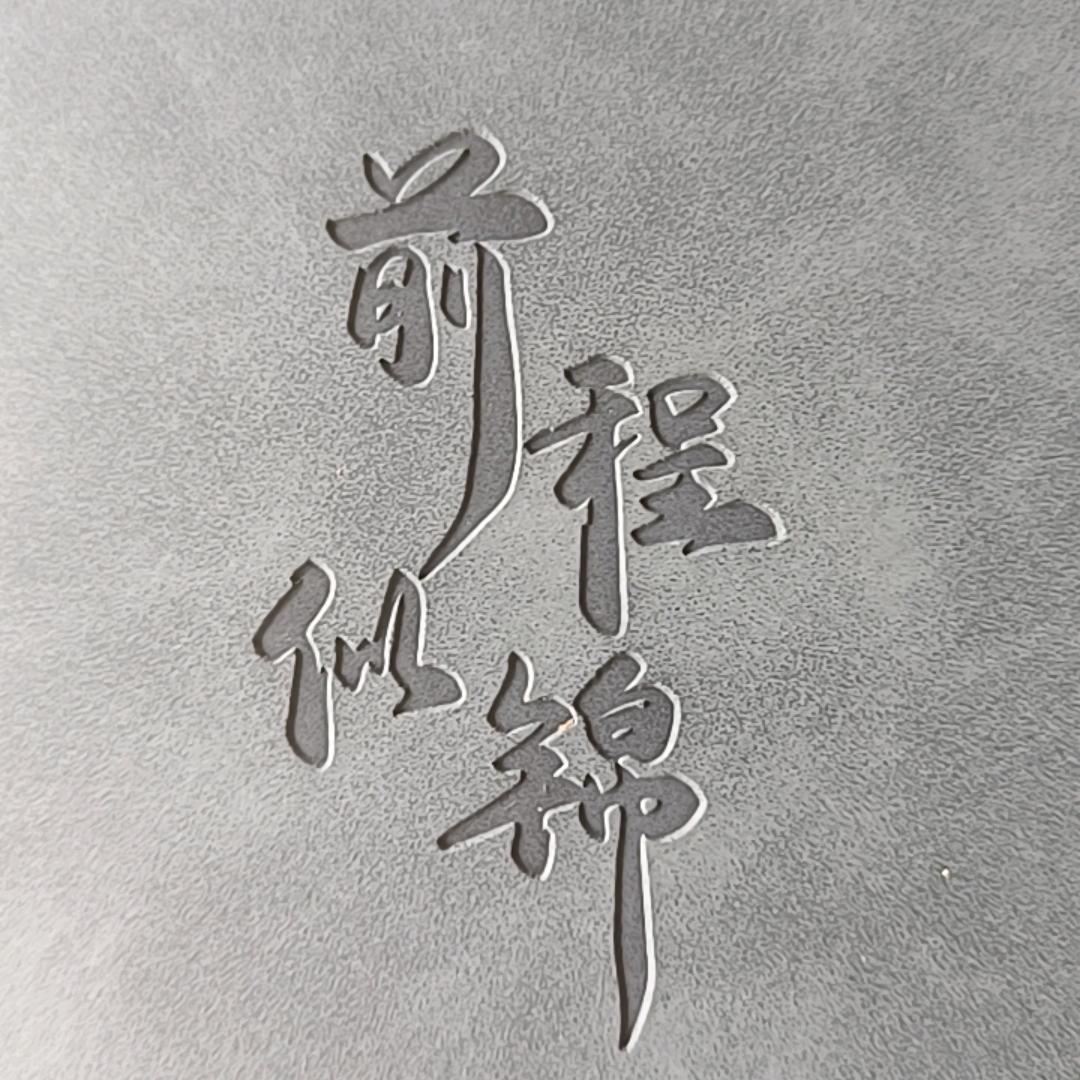 前程
似锦